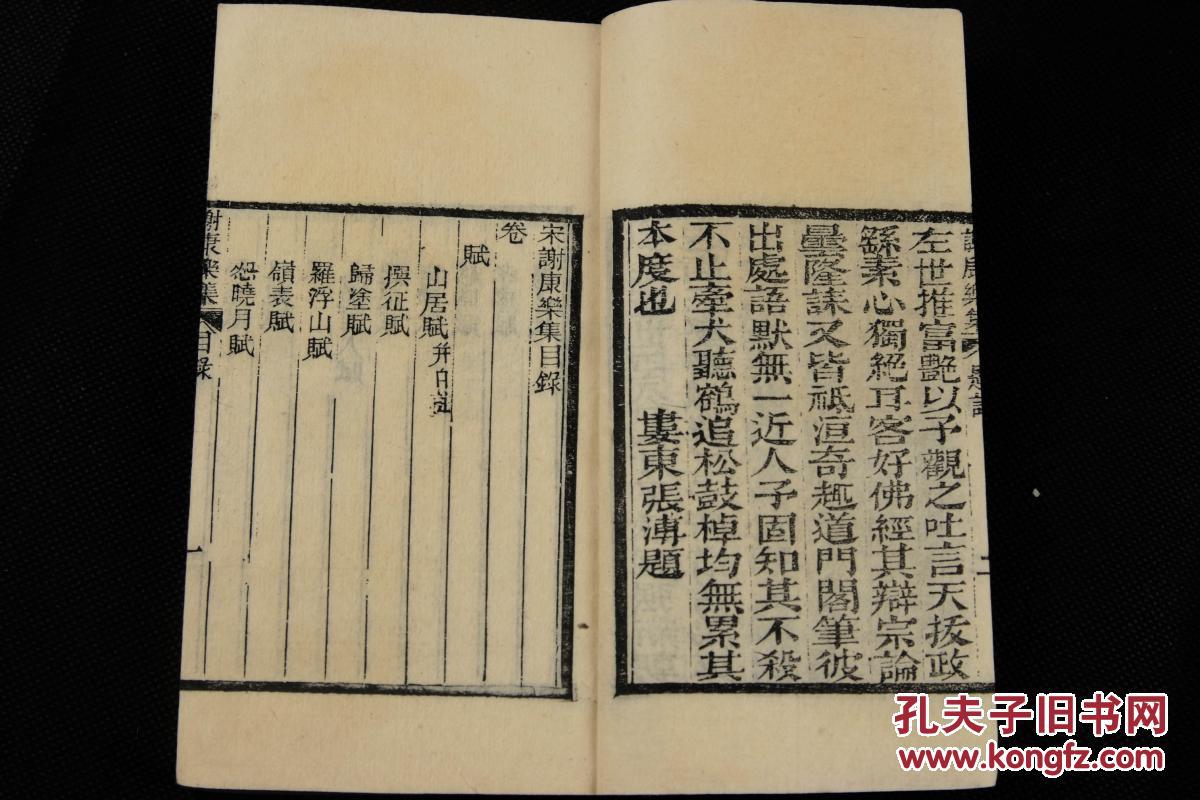 謝康樂集 題詞 二
左世推富艷以予觀之吐言天拔政
繇素心獨絕耳客好佛經其辯宗論
曇隆誄又皆祗洹奇趣道門閣筆彼
出處語默無一近人予固知其不殺
不止牽犬聽鶴追松鼓棹均無累其
本度也 婁東張溥題
宋謝康樂集目錄
卷
賦
山居賦并自註
撰征賦
歸塗賦
羅浮山賦
嶺表賦
怨曉月賦
謝康樂集 目錄 一
孔夫子旧书网
www.kongfz.com